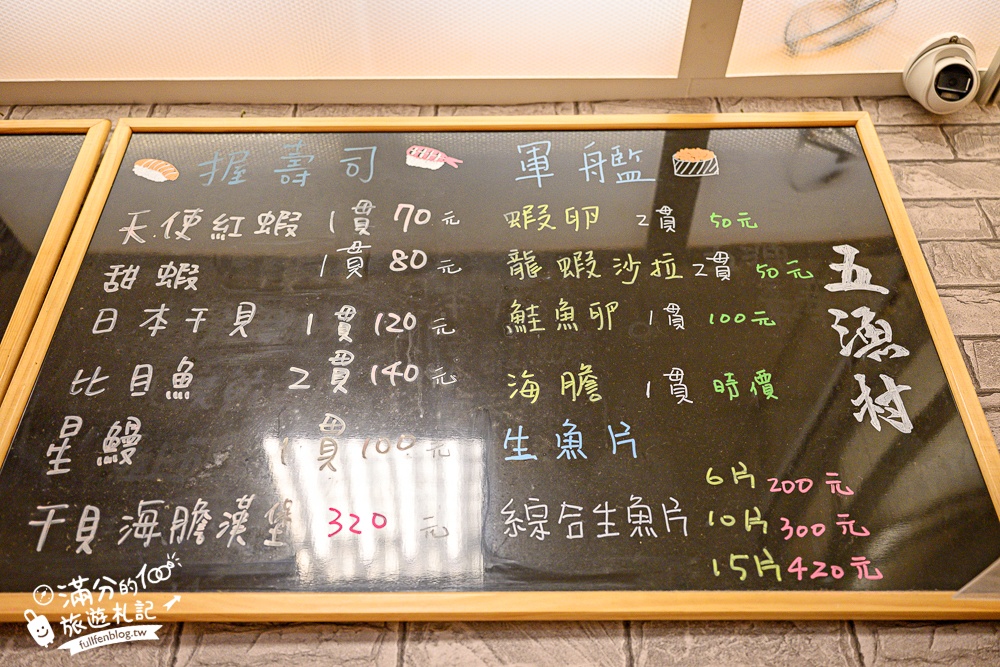 握壽司
天使紅蝦 1貫 70元
甜蝦 1貫 80元
日本干貝 1貫 120元
比目魚 2貫 140元
星鰻 1貫 100元
干貝海膽漢堡 320元
軍艦
蝦卵 2貫 50元
龍蝦沙拉 2貫 50元
鮭魚卵 1貫 100元
海膽 1貫 時價
生魚片
綜合生魚片
6片 200元
10片 300元
15片 420元
五漁村
滿分的100
旅遊札記
fullfenblog.tw